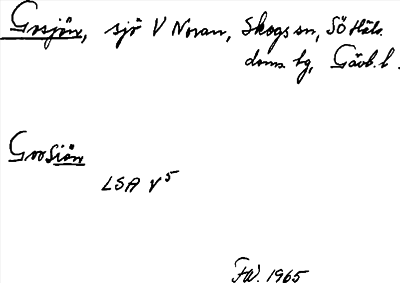 Grosjön, sjö V Noran, Skogs sn, Sö Häls.
doms hg, Gävb. l.
Grosjön
LSA V5
FW. 1965